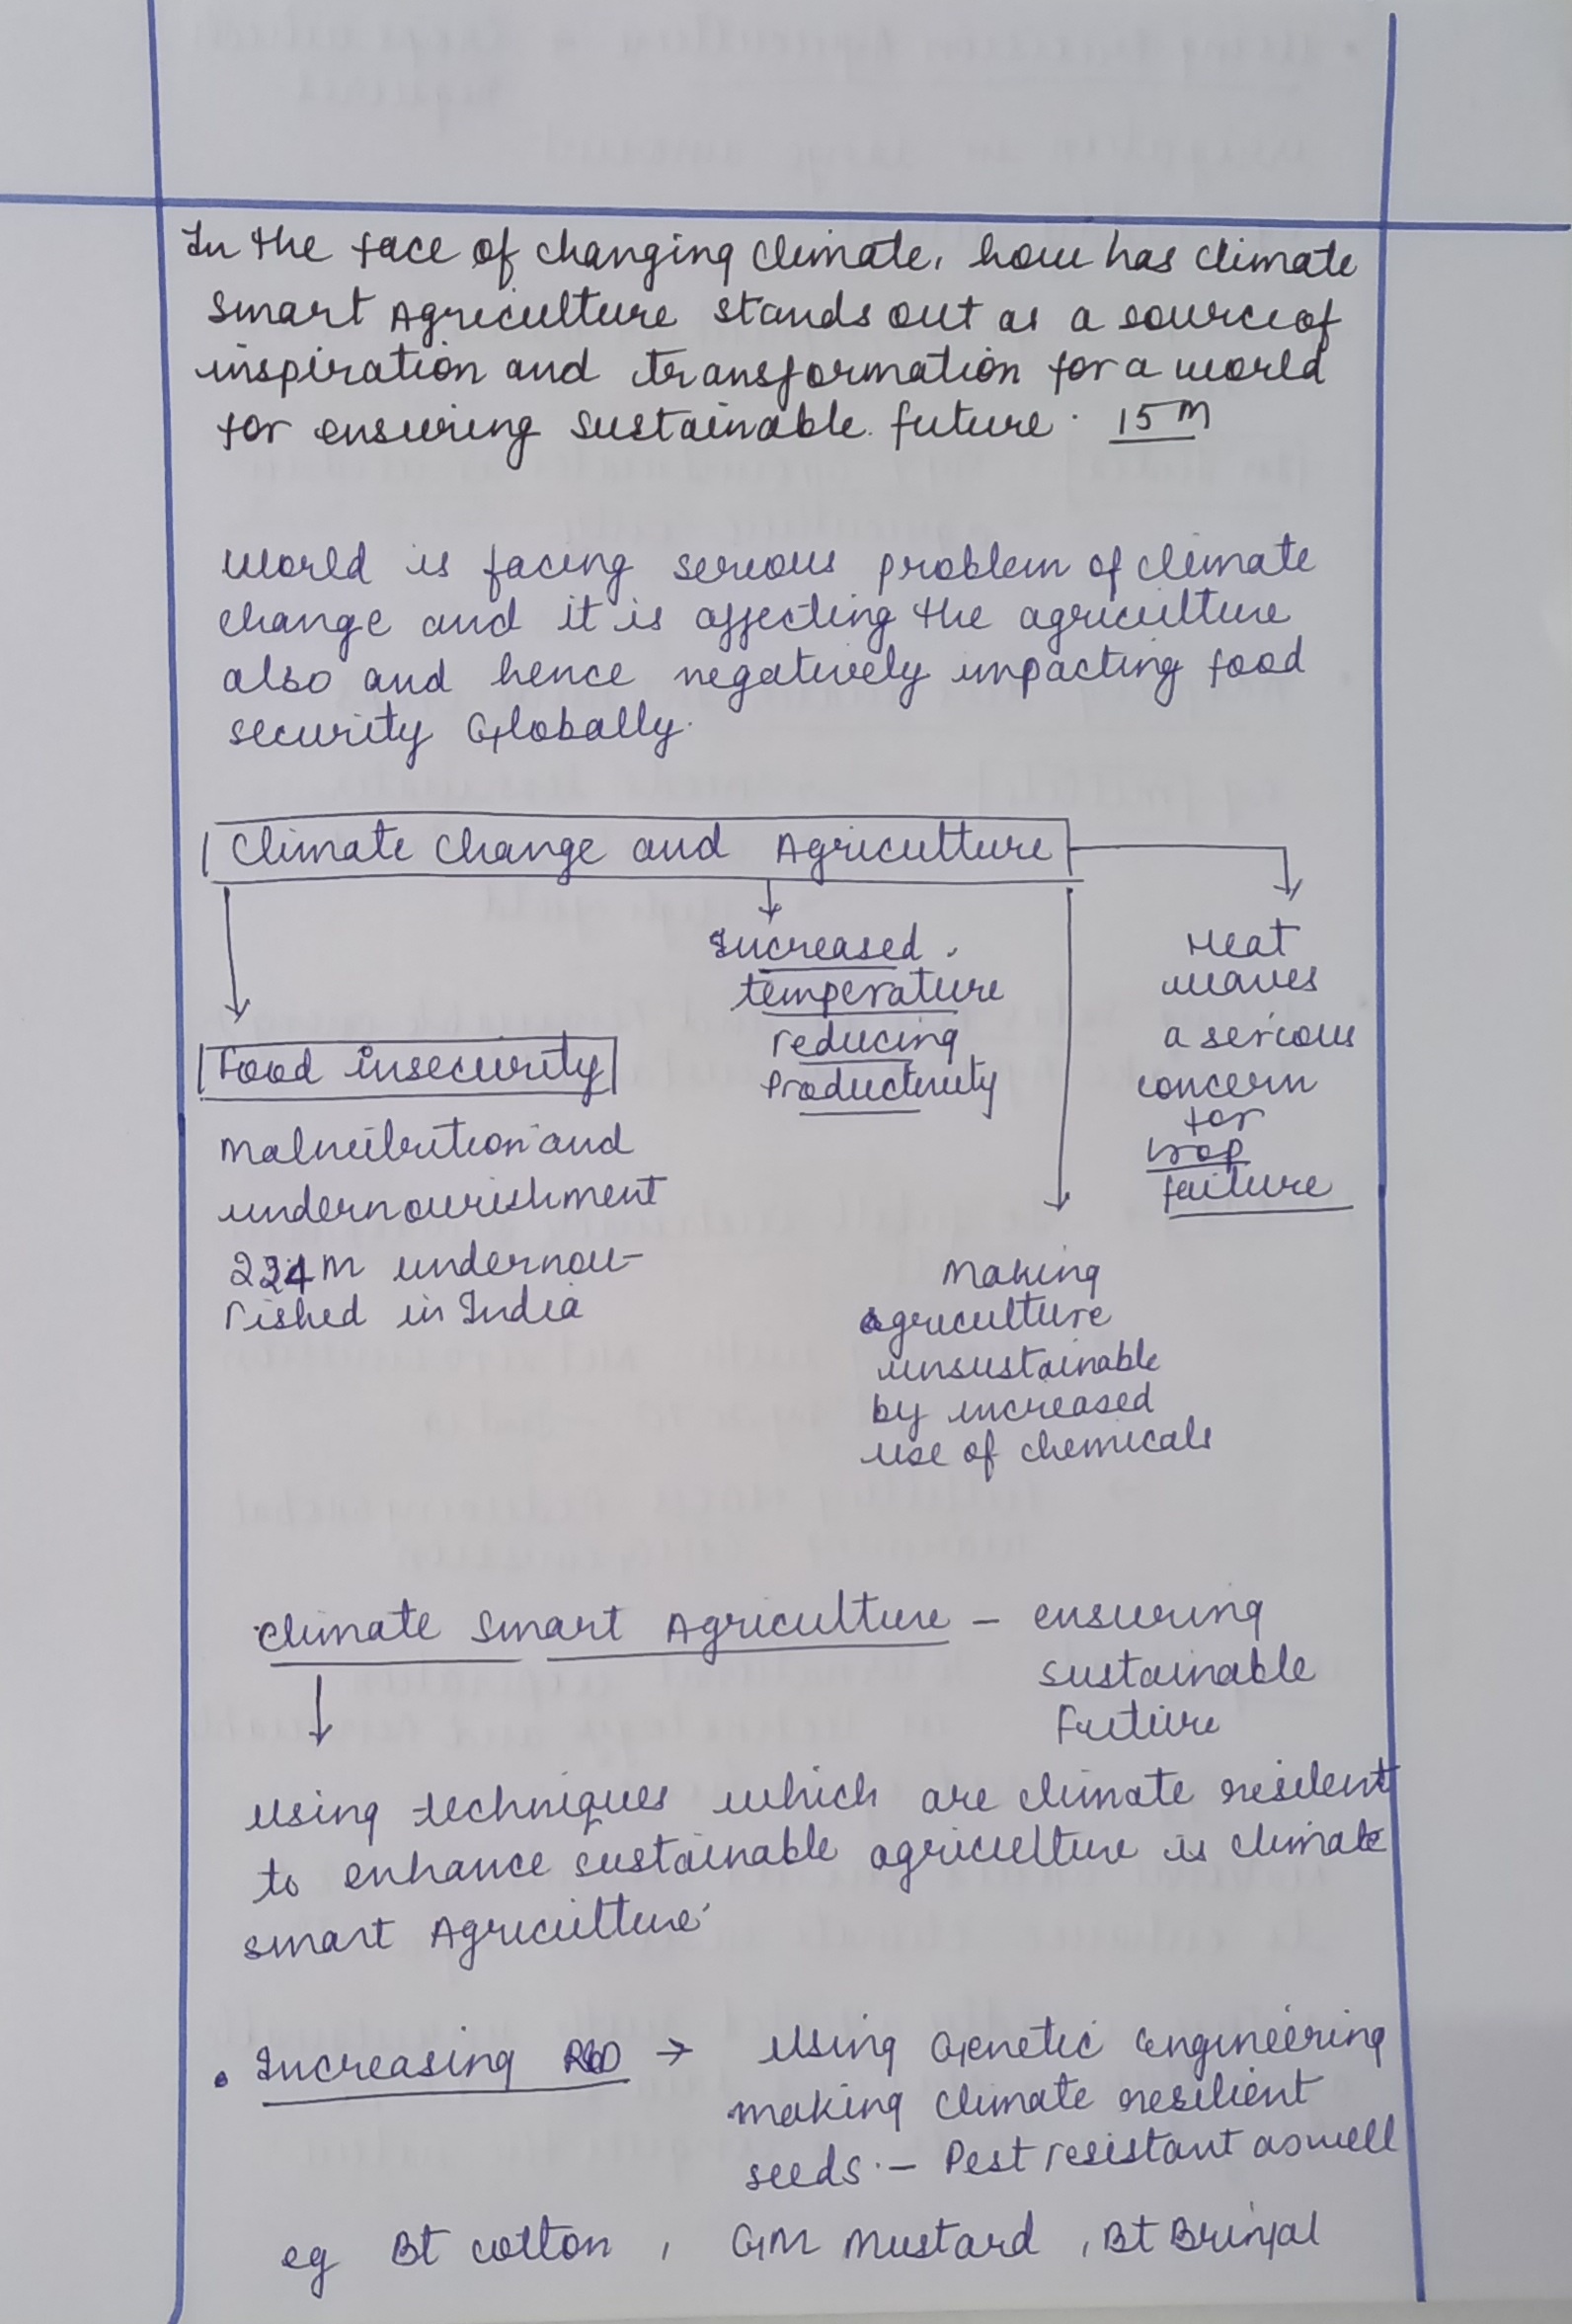 In the face of changing climate, how has climate
smart Agriculture stands out as a source of
inspiration and transformation for a world
for ensuring sustainable future. 15 M
World is facing serious problem of climate
change and it is affecting the agriculture
also and hence negatively impacting food
security Globally.
Climate Change and Agriculture
Food insecurity
Malnutrition and
undernourishment
224 M undernou-
rished in India
Increased
temperature
reducing
Productivity
Making
agriculture
unsustainable
by increased
use of chemicals
Heat
waves
a serious
concern
for
crop
failure
Climate Smart Agriculture – ensuring
sustainable
Future
Using techniques which are climate resilent
to enhance sustainable agriculture is climate
smart Agriculture.
• Increasing R&D → Using Genetic Engineering
making climate resilient
seeds. – Pest resistant as well
eg Bt cotton, GM Mustard, Bt Brinjal